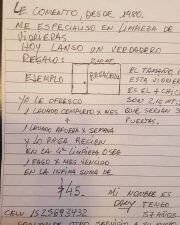 LE COMENTO, DESDE 1980.
ME ESPECIALISO EN LIMPIEZA DE
VIDRIERAS
HOY LANSO UN VERDADERO
REGALO: 2,10 MT.
EJEMPLO
EL TAMAÑO D
ESTA VIDRIER
ES EL + CHIC
SON 2,10 MT.
YO LE OFRESCO
1 LAVADO COMPLETO X MES QUE SERIAN 3
+ PUERTAS.
1 LAVADO AFUERA X SEMANA
Y LO PAGA RECIEN
EN LA 4º LIMPIEZA O SEA
1 PAGO X MES VENCIDO
EN LA SUMA DE
$45.-
MI NOMBRE ES
TENGO
57 AÑOS
CELU 1525693932